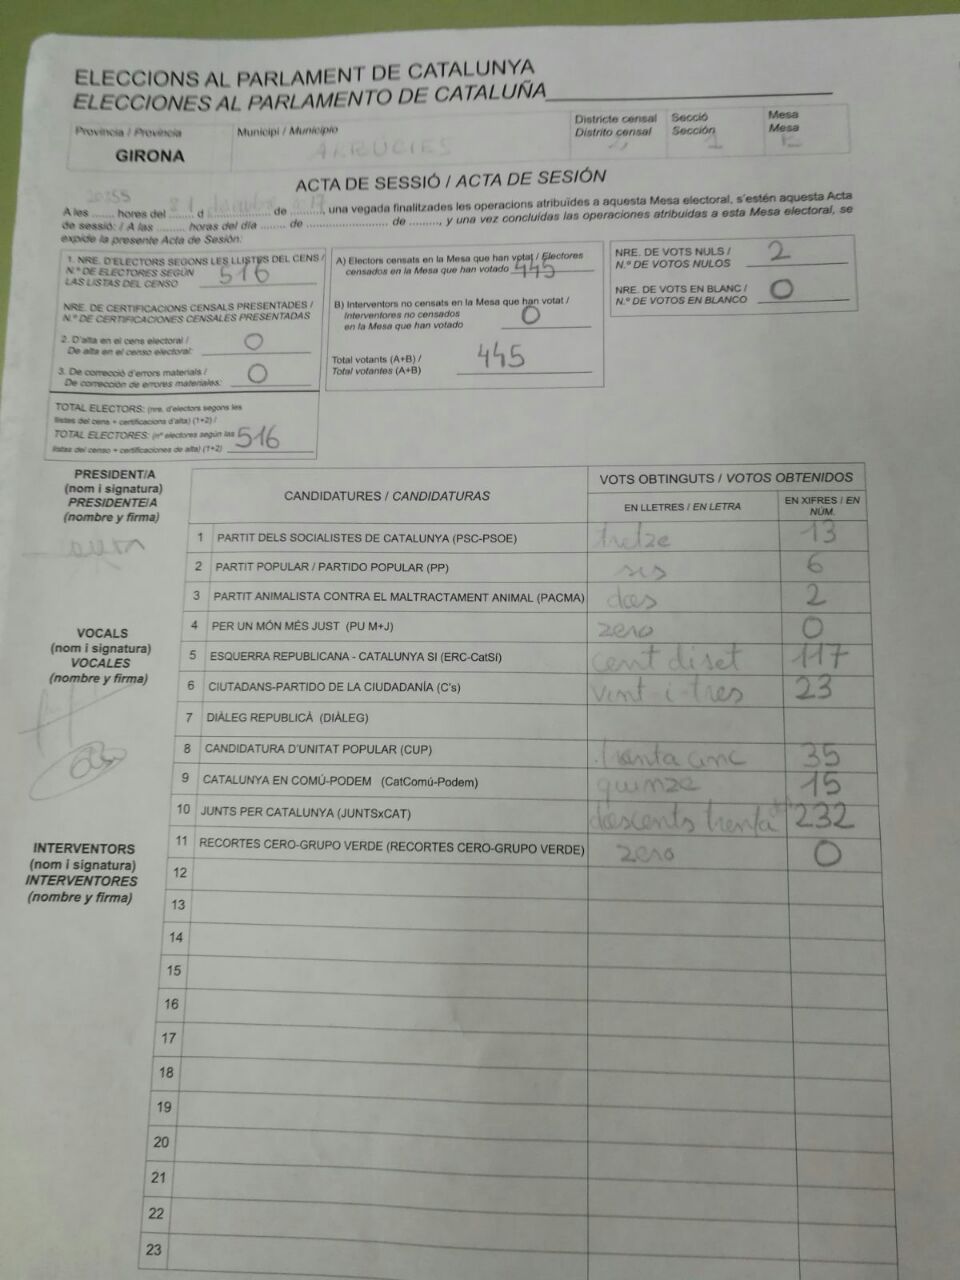 ELECCIONS AL PARLAMENT DE CATALUNYA
ELECCIONES AL PARLAMENTO DE CATALUÑA
Província / Provincia
GIRONA
Municipi / Municipio
ARBUCIES
Districte censal
Distrito censal
Secció
Sección
1
Mesa
Mesa
ACTA DE SESSIÓ / ACTA DE SESIÓN
20:55 21
A les ........ hores del ........ d ........ de ........, una vegada finalitzades les operacions atribuïdes a aquesta Mesa electoral, s'estén aquesta Acta
de sessió: / A las ........ horas del día ........ de ........ de ........, y una vez concluidas las operaciones atribuidas a esta Mesa electoral, se
expide la presente Acta de Sesión:
1. NRE. D'ELECTORS SEGONS LES LLISTES DEL CENS /
N.º DE ELECTORES SEGÚN
LAS LISTAS DEL CENSO 516
NRE. DE CERTIFICACIONS CENSALS PRESENTADES /
N.º DE CERTIFICACIONES CENSALES PRESENTADAS
2. D'alta en el cens electoral /
De alta en el censo electoral: 0
3. De correcció d'errors materials /
De corrección de errores materiales: 0
TOTAL ELECTORS: (nre. d'electors segons les
llistes del cens + certificacions d'alta) (1+2) /
TOTAL ELECTORES: (nº electores según las
listas del censo + certificaciones de alta) (1+2) 516
A) Electors censats en la Mesa que han votat / Electores
censados en la Mesa que han votado 445
B) Interventors no censats en la Mesa que han votat /
Interventores no censados
en la Mesa que han votado 0
Total votants (A+B) /
Total votantes (A+B) 445
NRE. DE VOTS NULS /
N.º DE VOTOS NULOS 2
NRE. DE VOTS EN BLANC /
N.º DE VOTOS EN BLANCO 0
PRESIDENT/A
(nom i signatura)
PRESIDENTE/A
(nombre y firma)
VOCALS
(nom i signatura)
VOCALES
(nombre y firma)
INTERVENTORS
(nom i signatura)
INTERVENTORES
(nombre y firma)
CANDIDATURES / CANDIDATURAS
VOTS OBTINGUTS / VOTOS OBTENIDOS
EN LLETRES / EN LETRA
EN XIFRES / EN
NÚM.
1 PARTIT DELS SOCIALISTES DE CATALUNYA (PSC-PSOE) tretze 13
2 PARTIT POPULAR / PARTIDO POPULAR (PP) sis 6
3 PARTIT ANIMALISTA CONTRA EL MALTRACTAMENT ANIMAL (PACMA) dos 2
4 PER UN MÓN MÉS JUST (PU M+J) zero 0
5 ESQUERRA REPUBLICANA - CATALUNYA SI (ERC-CatSí) cent diset 117
6 CIUTADANS-PARTIDO DE LA CIUDADANÍA (C's) vint-i-tres 23
7 DIÀLEG REPUBLICÀ (DIÀLEG)
8 CANDIDATURA D'UNITAT POPULAR (CUP) tranta cinc 35
9 CATALUNYA EN COMÚ-PODEM (CatComú-Podem) quinze 15
10 JUNTS PER CATALUNYA (JUNTSxCAT) doscents trenta 232
11 RECORTES CERO-GRUPO VERDE (RECORTES CERO-GRUPO VERDE) zero 0
12
13
14
15
16
17
18
19
20
21
22
23